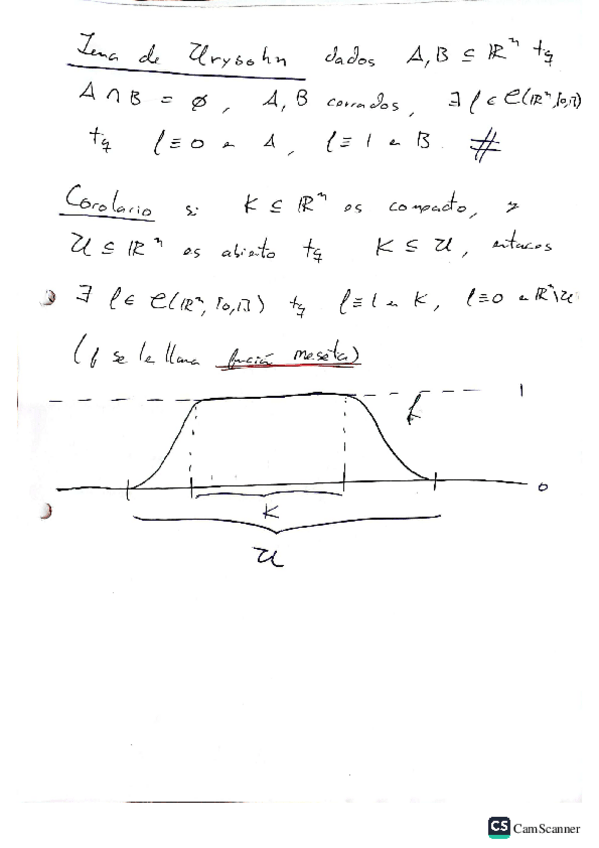 Lema de Urysohn dados A, B ⊆ ℝⁿ tq
A ∩ B = ∅, A, B cerrados, ∃ f ∈ C(ℝⁿ, [0,1])
tq f ≡ 0 en A, f ≡ 1 en B. #
Corolario si K ⊆ ℝⁿ es compacto, y
U ⊆ ℝⁿ es abierto tq K ⊆ U, entonces
∃ f ∈ C(ℝⁿ, [0,1]) tq f ≡ 1 en K, f ≡ 0 en ℝⁿ\U
(f se le llama función meseta)
1
f
0
K
U
CS CamScanner